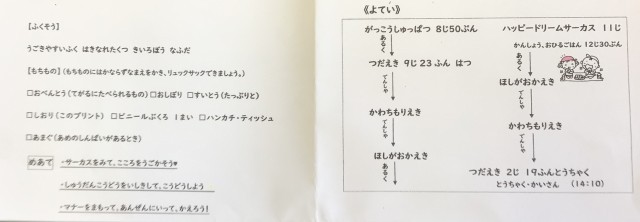 【ふくそう】
うごきやすいふく はきなれたくつ きいろぼう なふだ
【もちもの】(もちものにはかならずなまえをかき、リュックサックできましょう。)
□おべんとう(てがるにたべられるもの) □おしぼり □すいとう(たっぷりと)
□しおり(このプリント) □ビニールぶくろ 1まい □ハンカチ・ティッシュ
□あまぐ(あめのしんぱいがあるとき)
めあて ・サーカスをみて、こころをうごかそう♥
・しゅうだんこうどうをいしきして、こうどうしよう
・マナーをまもって、あんぜんにいって、かえろう!
《よてい》
がっこうしゅっぱつ 8じ50ぷん
あるく
つだえき 9じ23ふん はつ
でんしゃ
かわちもりえき
でんしゃ
ほしがおかえき
あるく
ハッピードリームサーカス 11じ
かんしょう、おひるごはん 12じ30ぷん
あるく
ほしがおかえき
でんしゃ
かわちもりえき
でんしゃ
つだえき 2じ 19ふんとうちゃく
とうちゃく・かいさん (14:10)